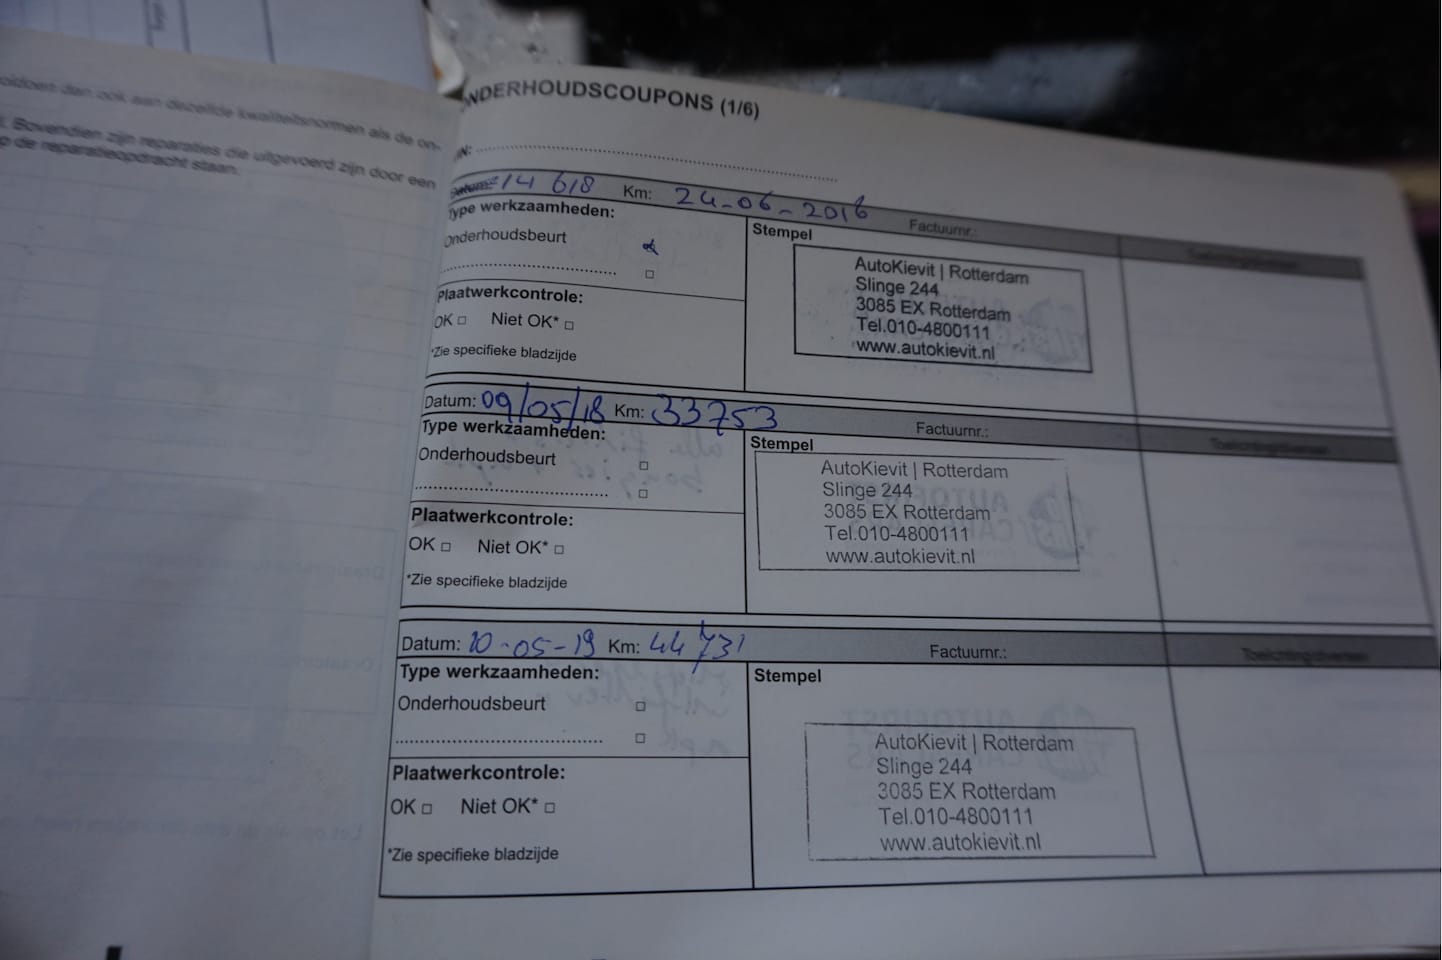 oldoen dan ook aan dezelfde kwaliteitsnormen als de on-
l. Bovendien zijn reparaties die uitgevoerd zijn door een
p de reparatieopdracht staan.
ONDERHOUDSCOUPONS (1/6)
Datum: 14 618 Km: 24-06-2016 Factuurnr.:
Type werkzaamheden:
Stempel
Onderhoudsbeurt
Plaatwerkcontrole:
OK □ Niet OK* □
*Zie specifieke bladzijde
AutoKievit | Rotterdam
Slinge 244
3085 EX Rotterdam
Tel.010-4800111
www.autokievit.nl
Datum: 09/05/18 Km: 33753 Factuurnr.:
Type werkzaamheden:
Stempel
Onderhoudsbeurt □
□
Plaatwerkcontrole:
OK □ Niet OK* □
*Zie specifieke bladzijde
AutoKievit | Rotterdam
Slinge 244
3085 EX Rotterdam
Tel.010-4800111
www.autokievit.nl
Datum: 10-05-19 Km: 44731 Factuurnr.:
Type werkzaamheden:
Stempel
Onderhoudsbeurt □
□
Plaatwerkcontrole:
OK □ Niet OK* □
*Zie specifieke bladzijde
AutoKievit | Rotterdam
Slinge 244
3085 EX Rotterdam
Tel.010-4800111
www.autokievit.nl